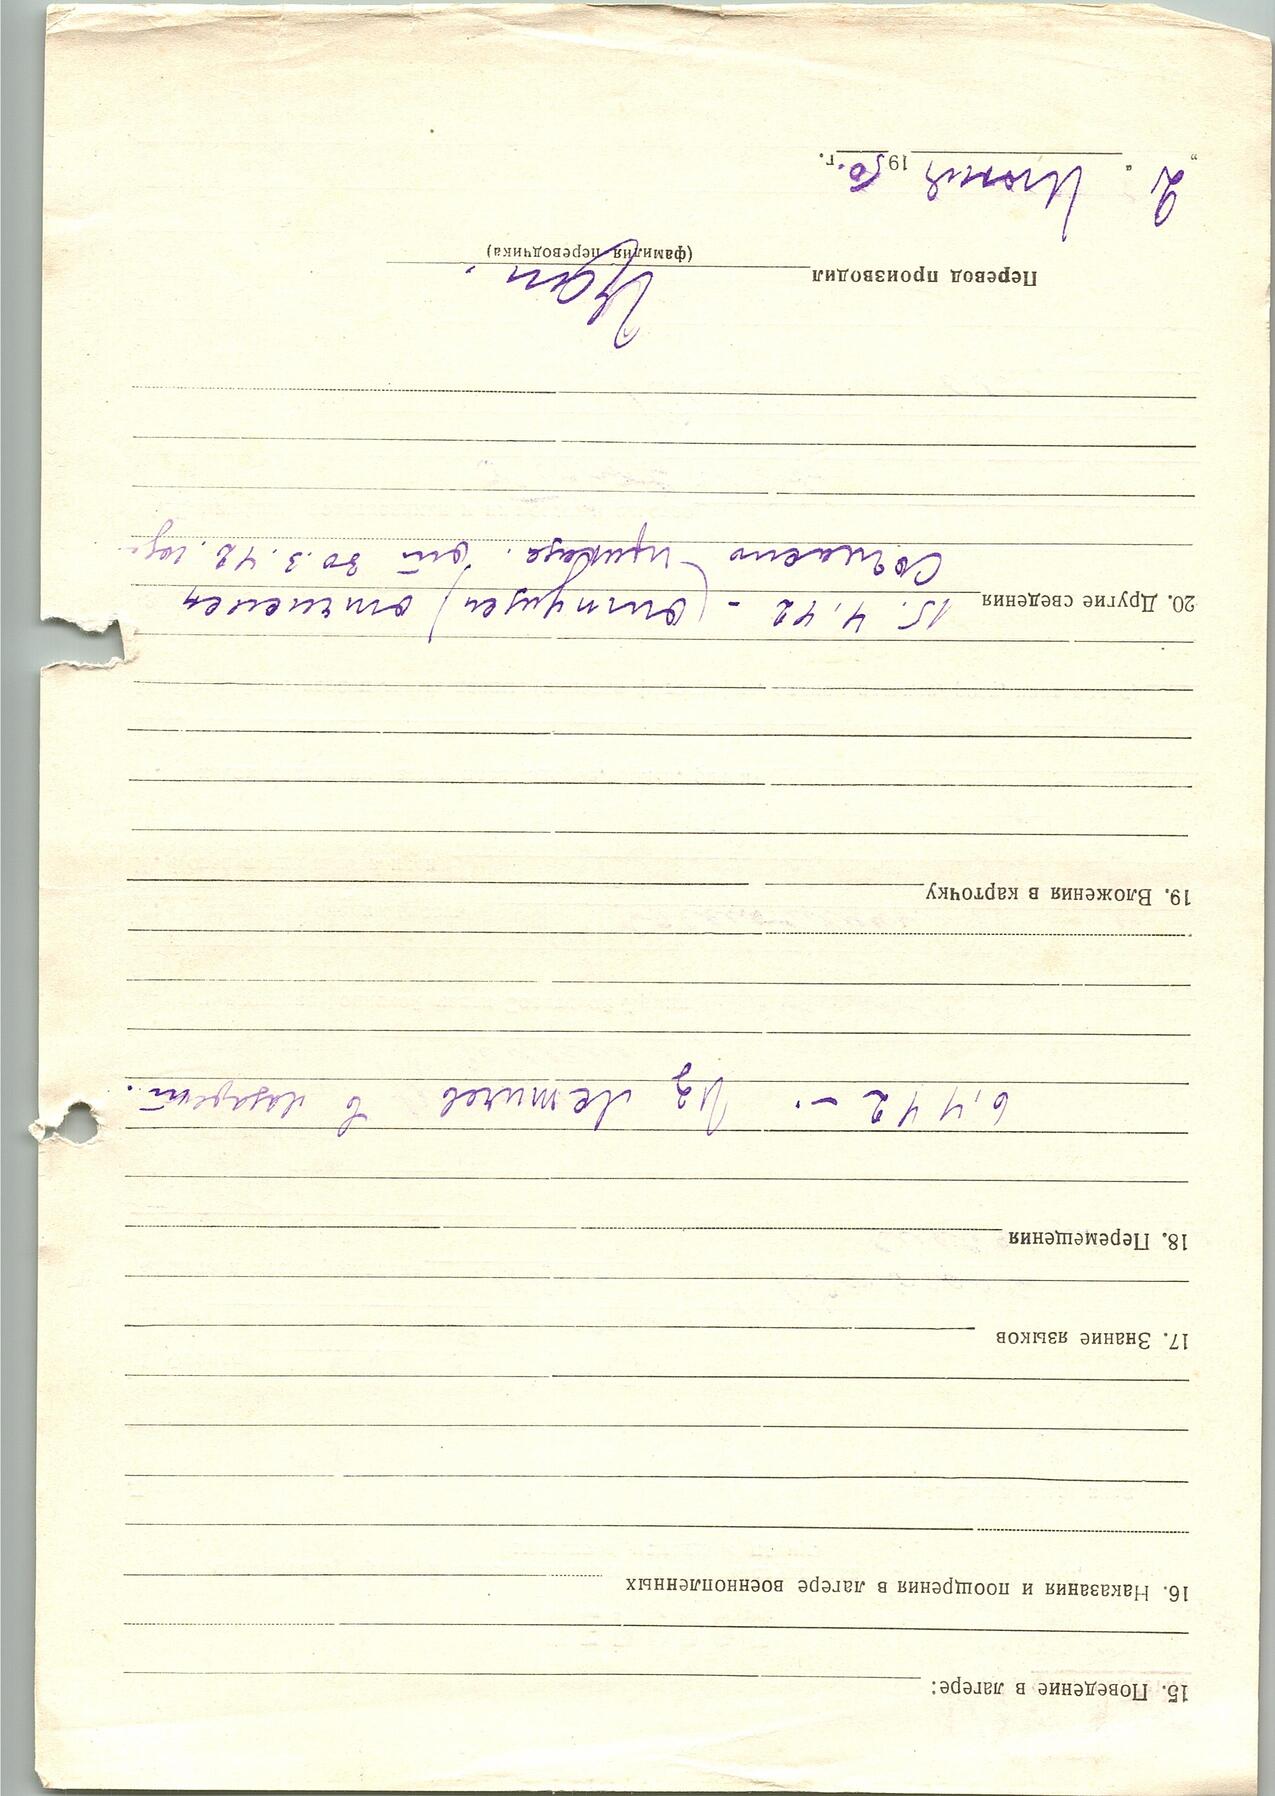 15. Поведение в лагере:
16. Наказания и поощрения в лагере военнопленных
17. Знание языков
18. Перемещения
6,4 42 –. Из Летичев в лазарет.
19. Вложения в карточку
20. Другие сведения 15. 4, 42 – (отпущен)
Согласно приказа. от 30.3.42.
Перевод производил
(фамилия переводчика)
„ 2 “ Июня 1950. г.